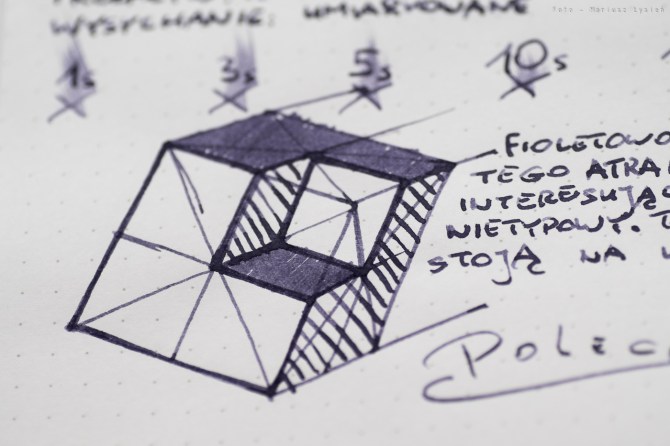 WYSYCHANIE: UMIARKOWANE
Foto - Mariusz Łysień
1s 3s 5s 10s
FIOLETOWO
TEGO ATRA
INTERESUJĄC
NIETYPOWY.
STOJĄ NA
POLEC